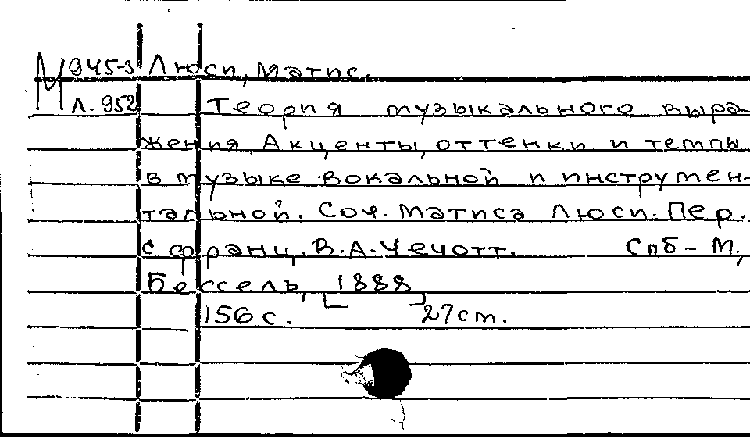 М 945-3 Люси, Матис.
Л. 952 Теория музыкального выра-
жения. Акценты, оттенки и темпы
в музыке вокальной и инструмен-
тальной. Соч. Матиса Люси. Пер.
с франц. В.А. Чечотт. Спб-М,
Бессель, [1888]
156 с. 27 cm.